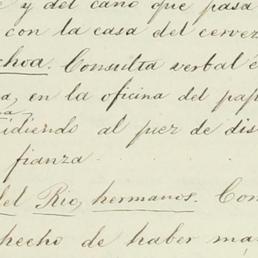 y del caño que pasa
con la casa del cervez
choa. Consulta verbal é
a, en la oficina del pap
idiendo al juez de dis
fianza.
del Rio, hermanos. Con
hecho de haber ma